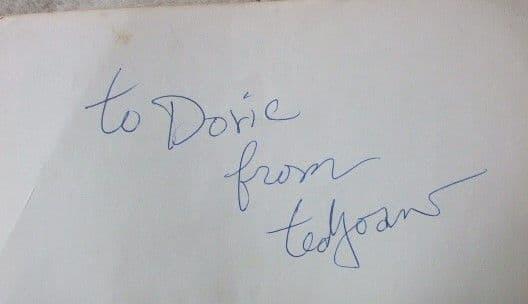 to Dorie
from
ted joans